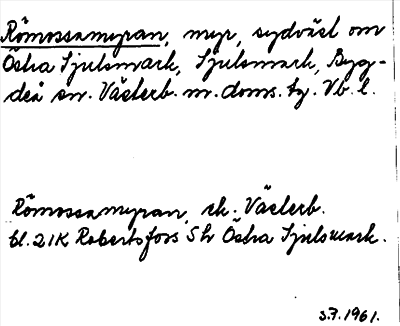 Römossamyran, myr, sydväst om
Östra Sjulsmark, Sjulsmark, Byg-
deå sn. Västerb. m. doms. tg. Vb. l.
Römossamyran, ek. Västerb.
bl. 21K Robertsfors SV Östra Sjulsmark.
3.7.1961.